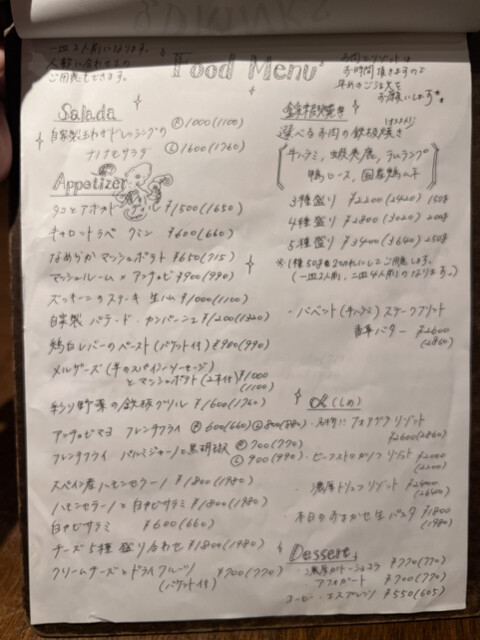 一皿2人前になります。
人数に合わせての
ご用意もできます。
Food Menu
お肉とリゾットは
お時間頂きますので
早めのご注文を
お願いします*。
Salada
自家製 ドレッシングの
サラダ
Ⓡ1000(1100)
Ⓛ1600(1760)
Appetizer
タコとアボカド ¥1500(1650)
キャロットラペ クミン ¥600(660)
なめらか マッシュポテト ¥650(715)
マッシュルーム × アンチョビ ¥900(990)
ズッキーニのステーキ 生ハム ¥1000(1100)
自家製 パテ・ド・カンパーニュ ¥1200(1320)
鶏白レバーのペースト(バゲット付) ¥900(990)
メルゲーズ(羊のスパイシーソーセージ)
とマッシュポテト(2本付) ¥1000
(1100)
彩り野菜の鉄板グリル ¥1600(1760)
アンチョビマヨ フレンチフライ Ⓡ600(660) Ⓛ800(880)
フレンチフライ パルミジャーノと黒胡椒 Ⓡ700(770)
Ⓛ900(990)
スペイン産ハモンセラーノ ¥1800(1980)
ハモンセラーノと白カビサラミ ¥1800(1980)
白カビサラミ ¥600(660)
チーズ5種盛り合わせ ¥1800(1980)
クリームチーズとドライフルーツ ¥700(770)
(バゲット付)
鉄板焼き
選べるお肉の鉄板焼き
牛ハラミ, 蝦夷鹿, ラムランプ
鴨ロース, 国産鶏モモ
3種盛り ¥2200(2420) 150g
4種盛り ¥2800(3020) 200g
5種盛り ¥3400(3640) 250g
※1種50gを2切れにしてご用意します。
(一皿2人前、二皿4人前のなります。)
・バベット(牛ハラミ)ステークフリット
香草バター ¥2600
(2860)
〆(しめ)
フォアグラ リゾット
¥2600(2860)
・ビーフストロガノフ リゾット ¥2000
(2200)
・濃厚トリュフリゾット ¥2400
(2640)
・本日のおまかせ生パスタ ¥1800
(1980)
Dessert
・濃厚ガトーショコラ ¥770(770)
・アフォガート ¥700(770)
コーヒー・エスプレッソ ¥550(605)